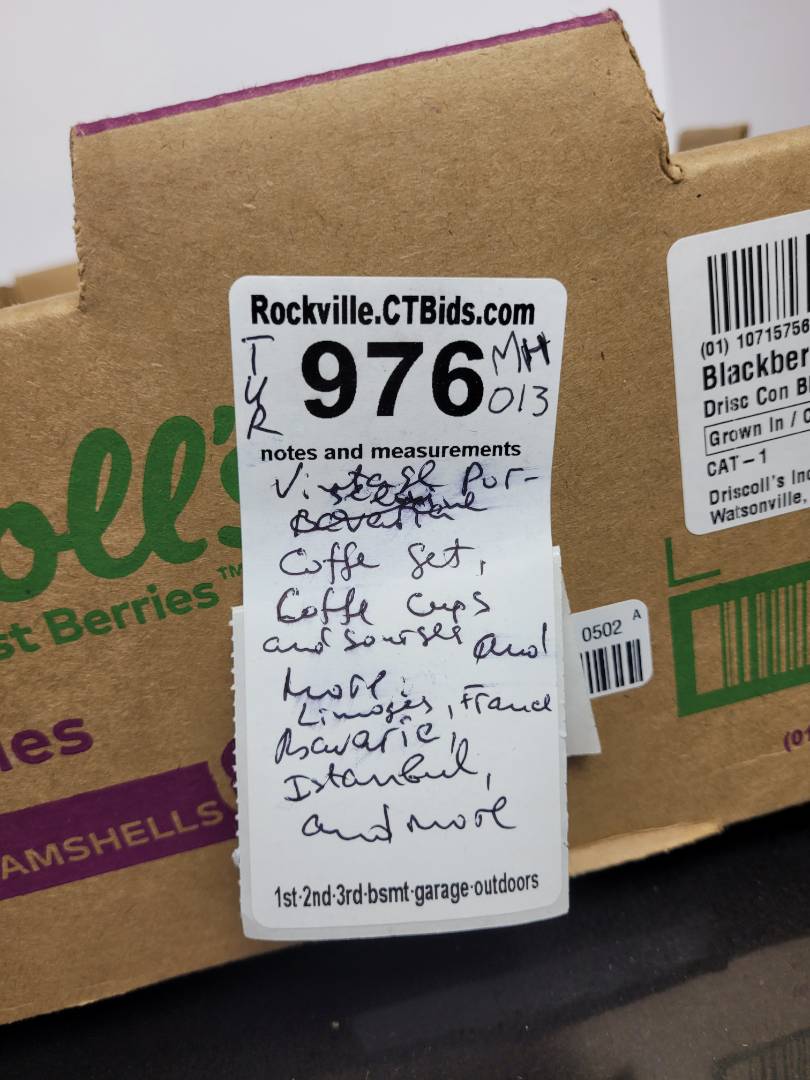 Rockville.CTBids.com
TUR
976
MH
013
notes and measurements
Vintage Por-
selaine
Coffe Set,
Coffe Cups
and sourses and
more.
Limoges, France
Bavaric,
Istanbul,
and more
1st·2nd·3rd·bsmt·garage·outdoors
oll's
st Berries™
ies
AMSHELLS
(01) 10715756
Blackber
Drisc Con Bl
Grown In / C
CAT-1
Driscoll's Inc
Watsonville,
0502 A
(01